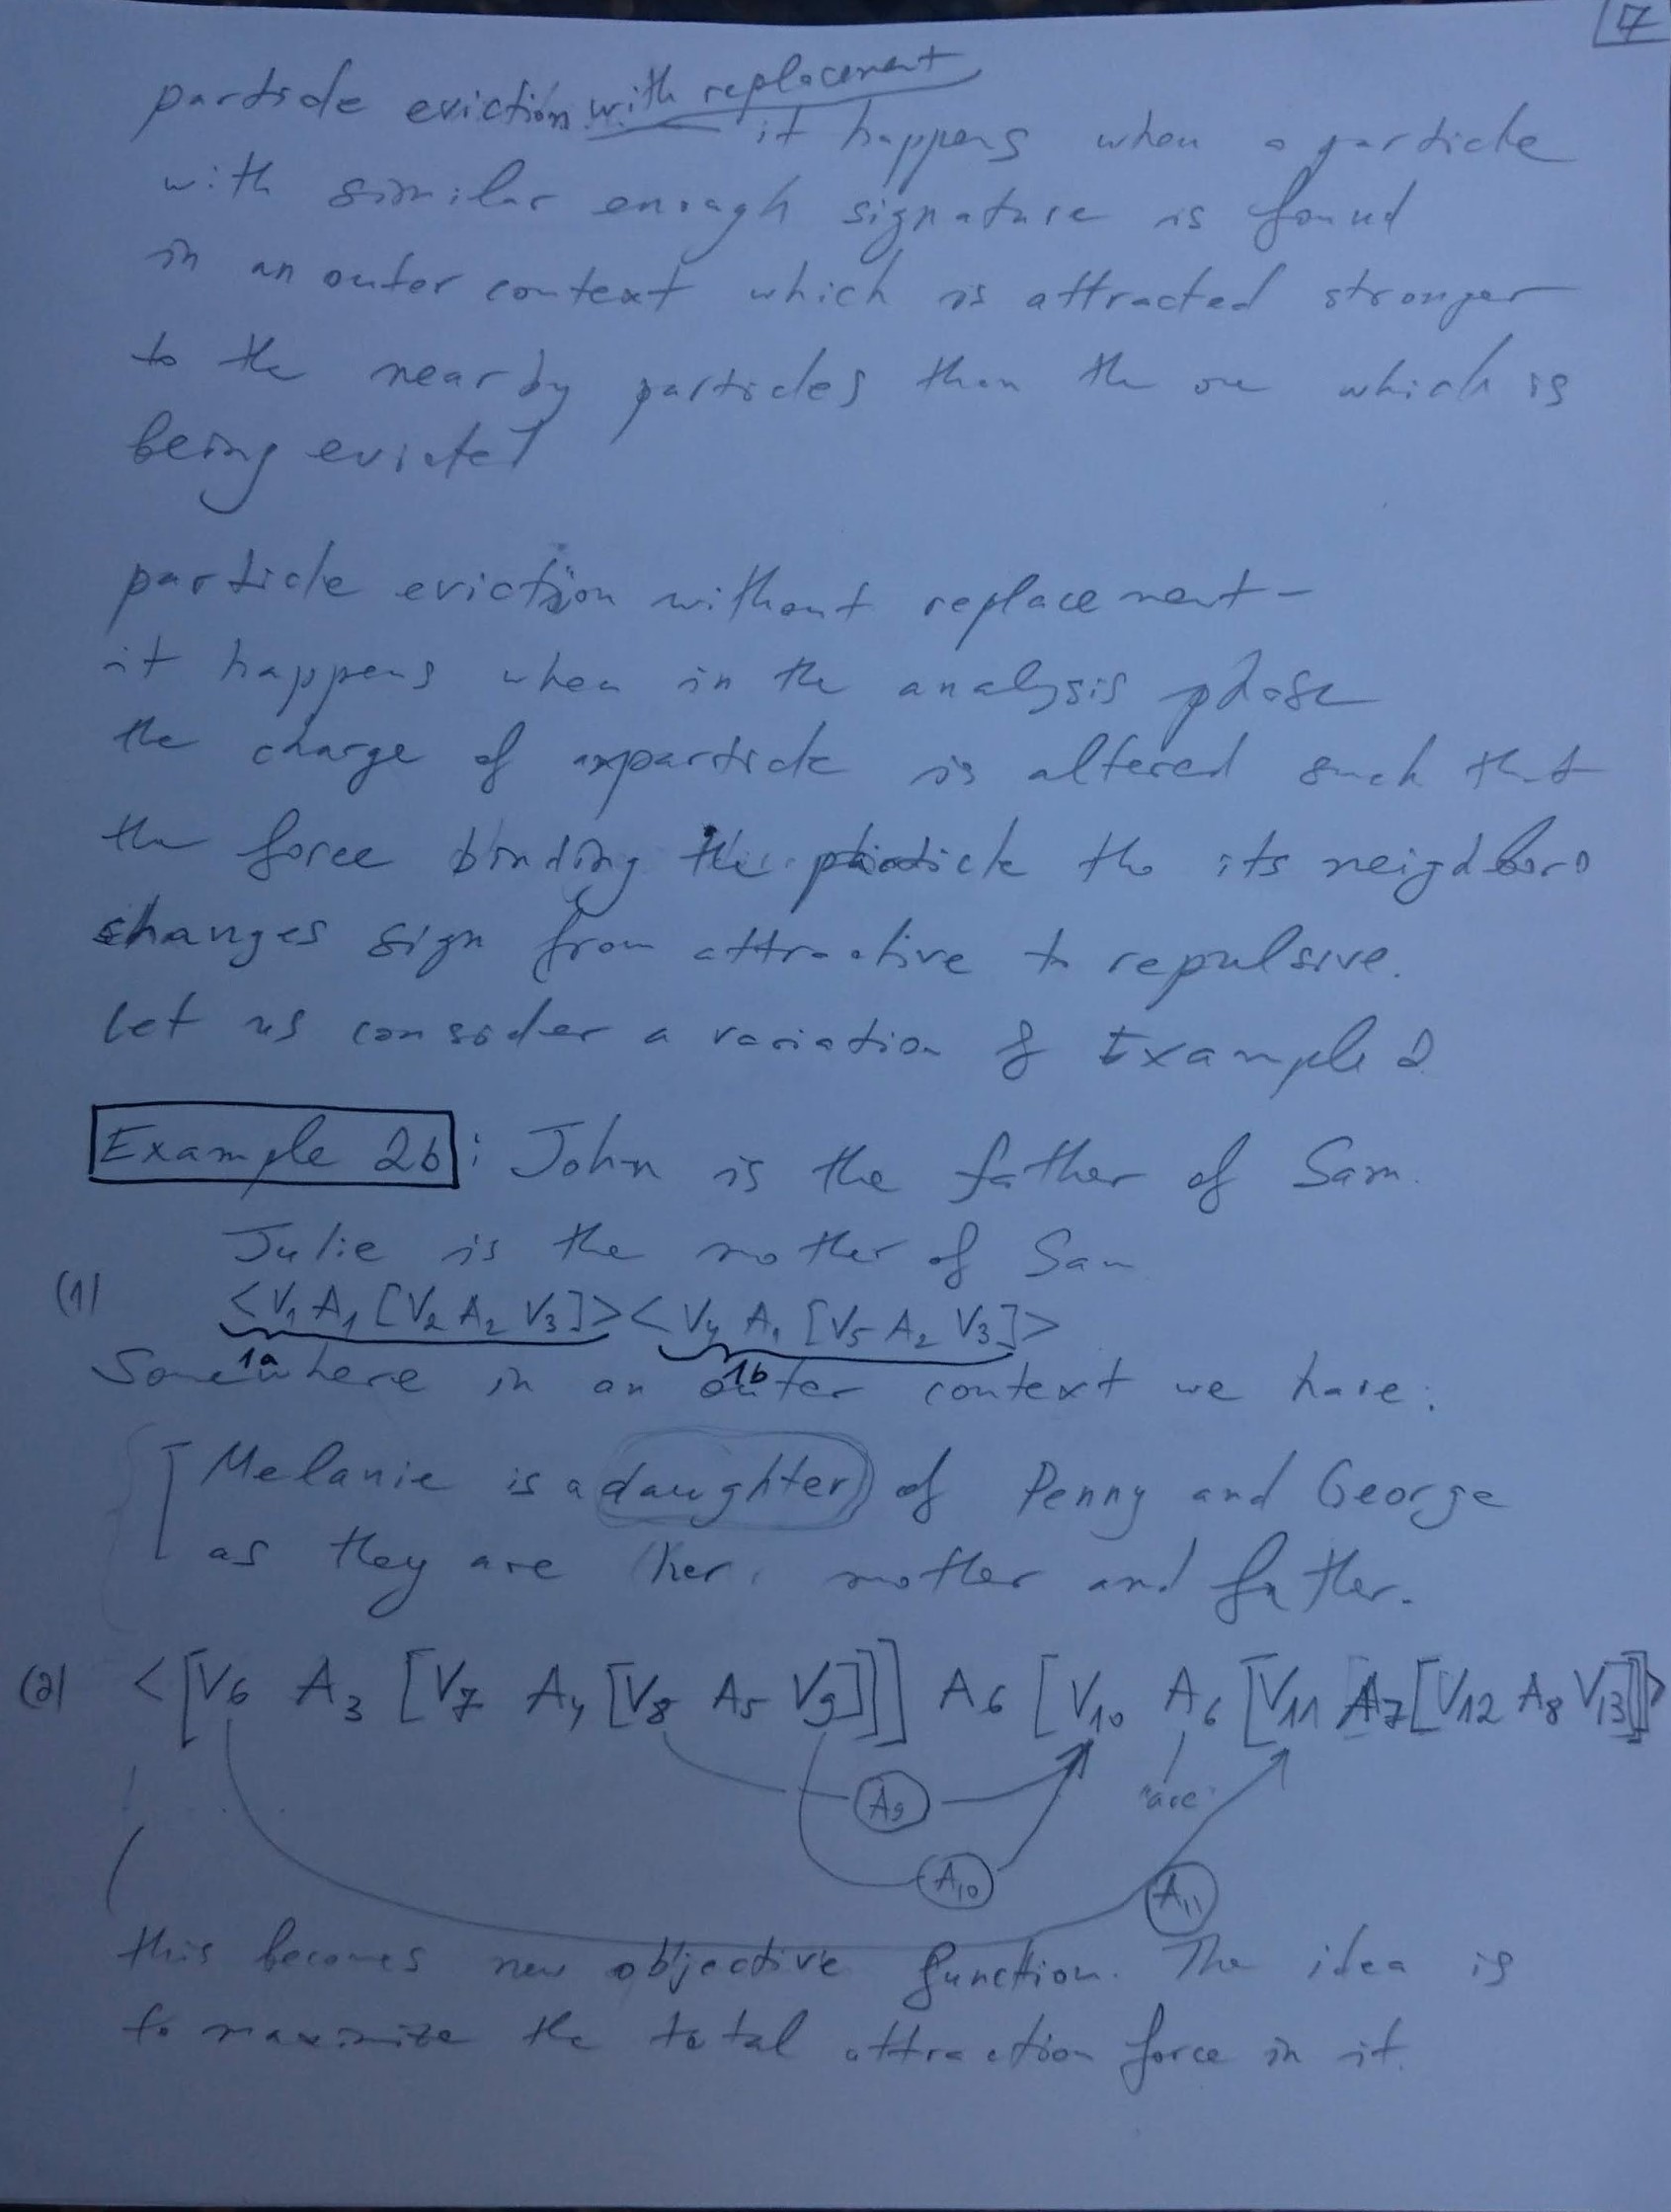 7
particle eviction with replacement
it happens when a particle
with similar enough signature is found
in an outer context which is attracted stronger
to the nearby particles than the one which is
being evicted
particle eviction without replacement -
it happens when in the analysis phase
the charge of particle is altered such that
the force binding the particle tho its neighbors
changes sign from attractive to repulsive.
Let us consider a variation of Example 2
Example 2b : John is the father of Sam.
Julie is the mother of Sam
(1) <V₁ A₁ [V₂ A₂ V₃]> <V₄ A₁ [V₅ A₂ V₃]>
1a 1b
Somewhere in an outer context we have:
Melanie is a daughter of Penny and George
as they are her mother and father.
(2) <[V₆ A₃ [V₇ A₄ [V₈ A₅ V₉]]] A₆ [V₁₀ A₆ [V₁₁ A₇ [V₁₂ A₈ V₁₃]]]>
A₉ "are"
A₁₀ A₁₁
this becomes new objective function. The idea is
to maximize the total attraction force in it.